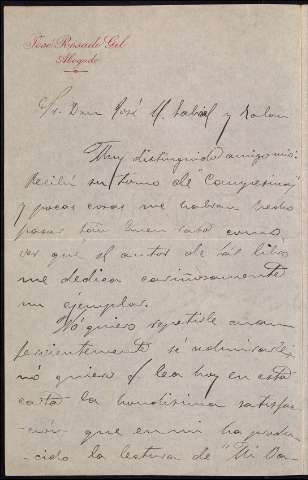 José Rosado Gil
Abogado
Sr. Don José M. Gabriel y Galan
Muy distinguido amigo mio:
Recibí su tomo de "Campesinas"
y pocas cosas me habran hecho
pasar tan buen rato como
ver que el autor de tal libro
me dedica cariñosamente
un ejemplar.
Nó quiero repetirle cuan
fervientemente sé admirarle;
nó quiero q. lea hoy en esta
carta la hondísima satisfac-
-ción que en mi ha produ-
-cido la lectura de "Mi Va-